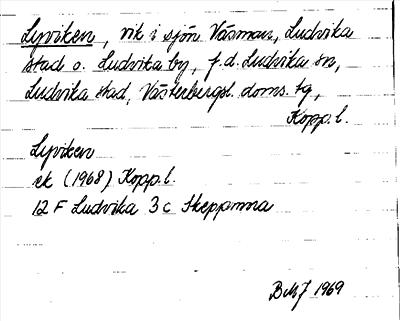 Lyviken, vik i sjön Väsman, Ludvika
stad o. Ludvika by, f.d. Ludvika sn,
Ludvika stad, Västerbergsl. doms. tg,
Kopp. l.
Lyviken
ek (1968) Kopp. l.
12 F Ludvika 3 c Skeppmora
BMJ 1969